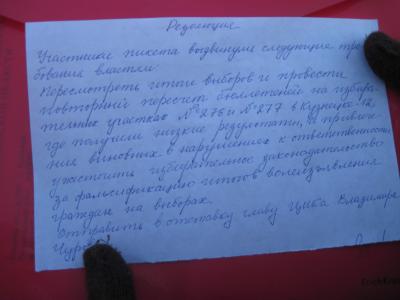 Резолюция
Участники пикета выдвинули следующие тре-
бования власти:
Пересмотреть итоги выборов и провести
повторный пересчет бюллетеней на избира-
тельных участках №276 и №277 в Кузнецке-12,
где получили низкие результаты, и привлече-
ния виновных в нарушениях к ответственности,
ужесточить избирательное законодательство
за фальсификацию итогов волеизъявления
граждан на выборах.
Отправить в отставку главу Цика Владимира
Чурова